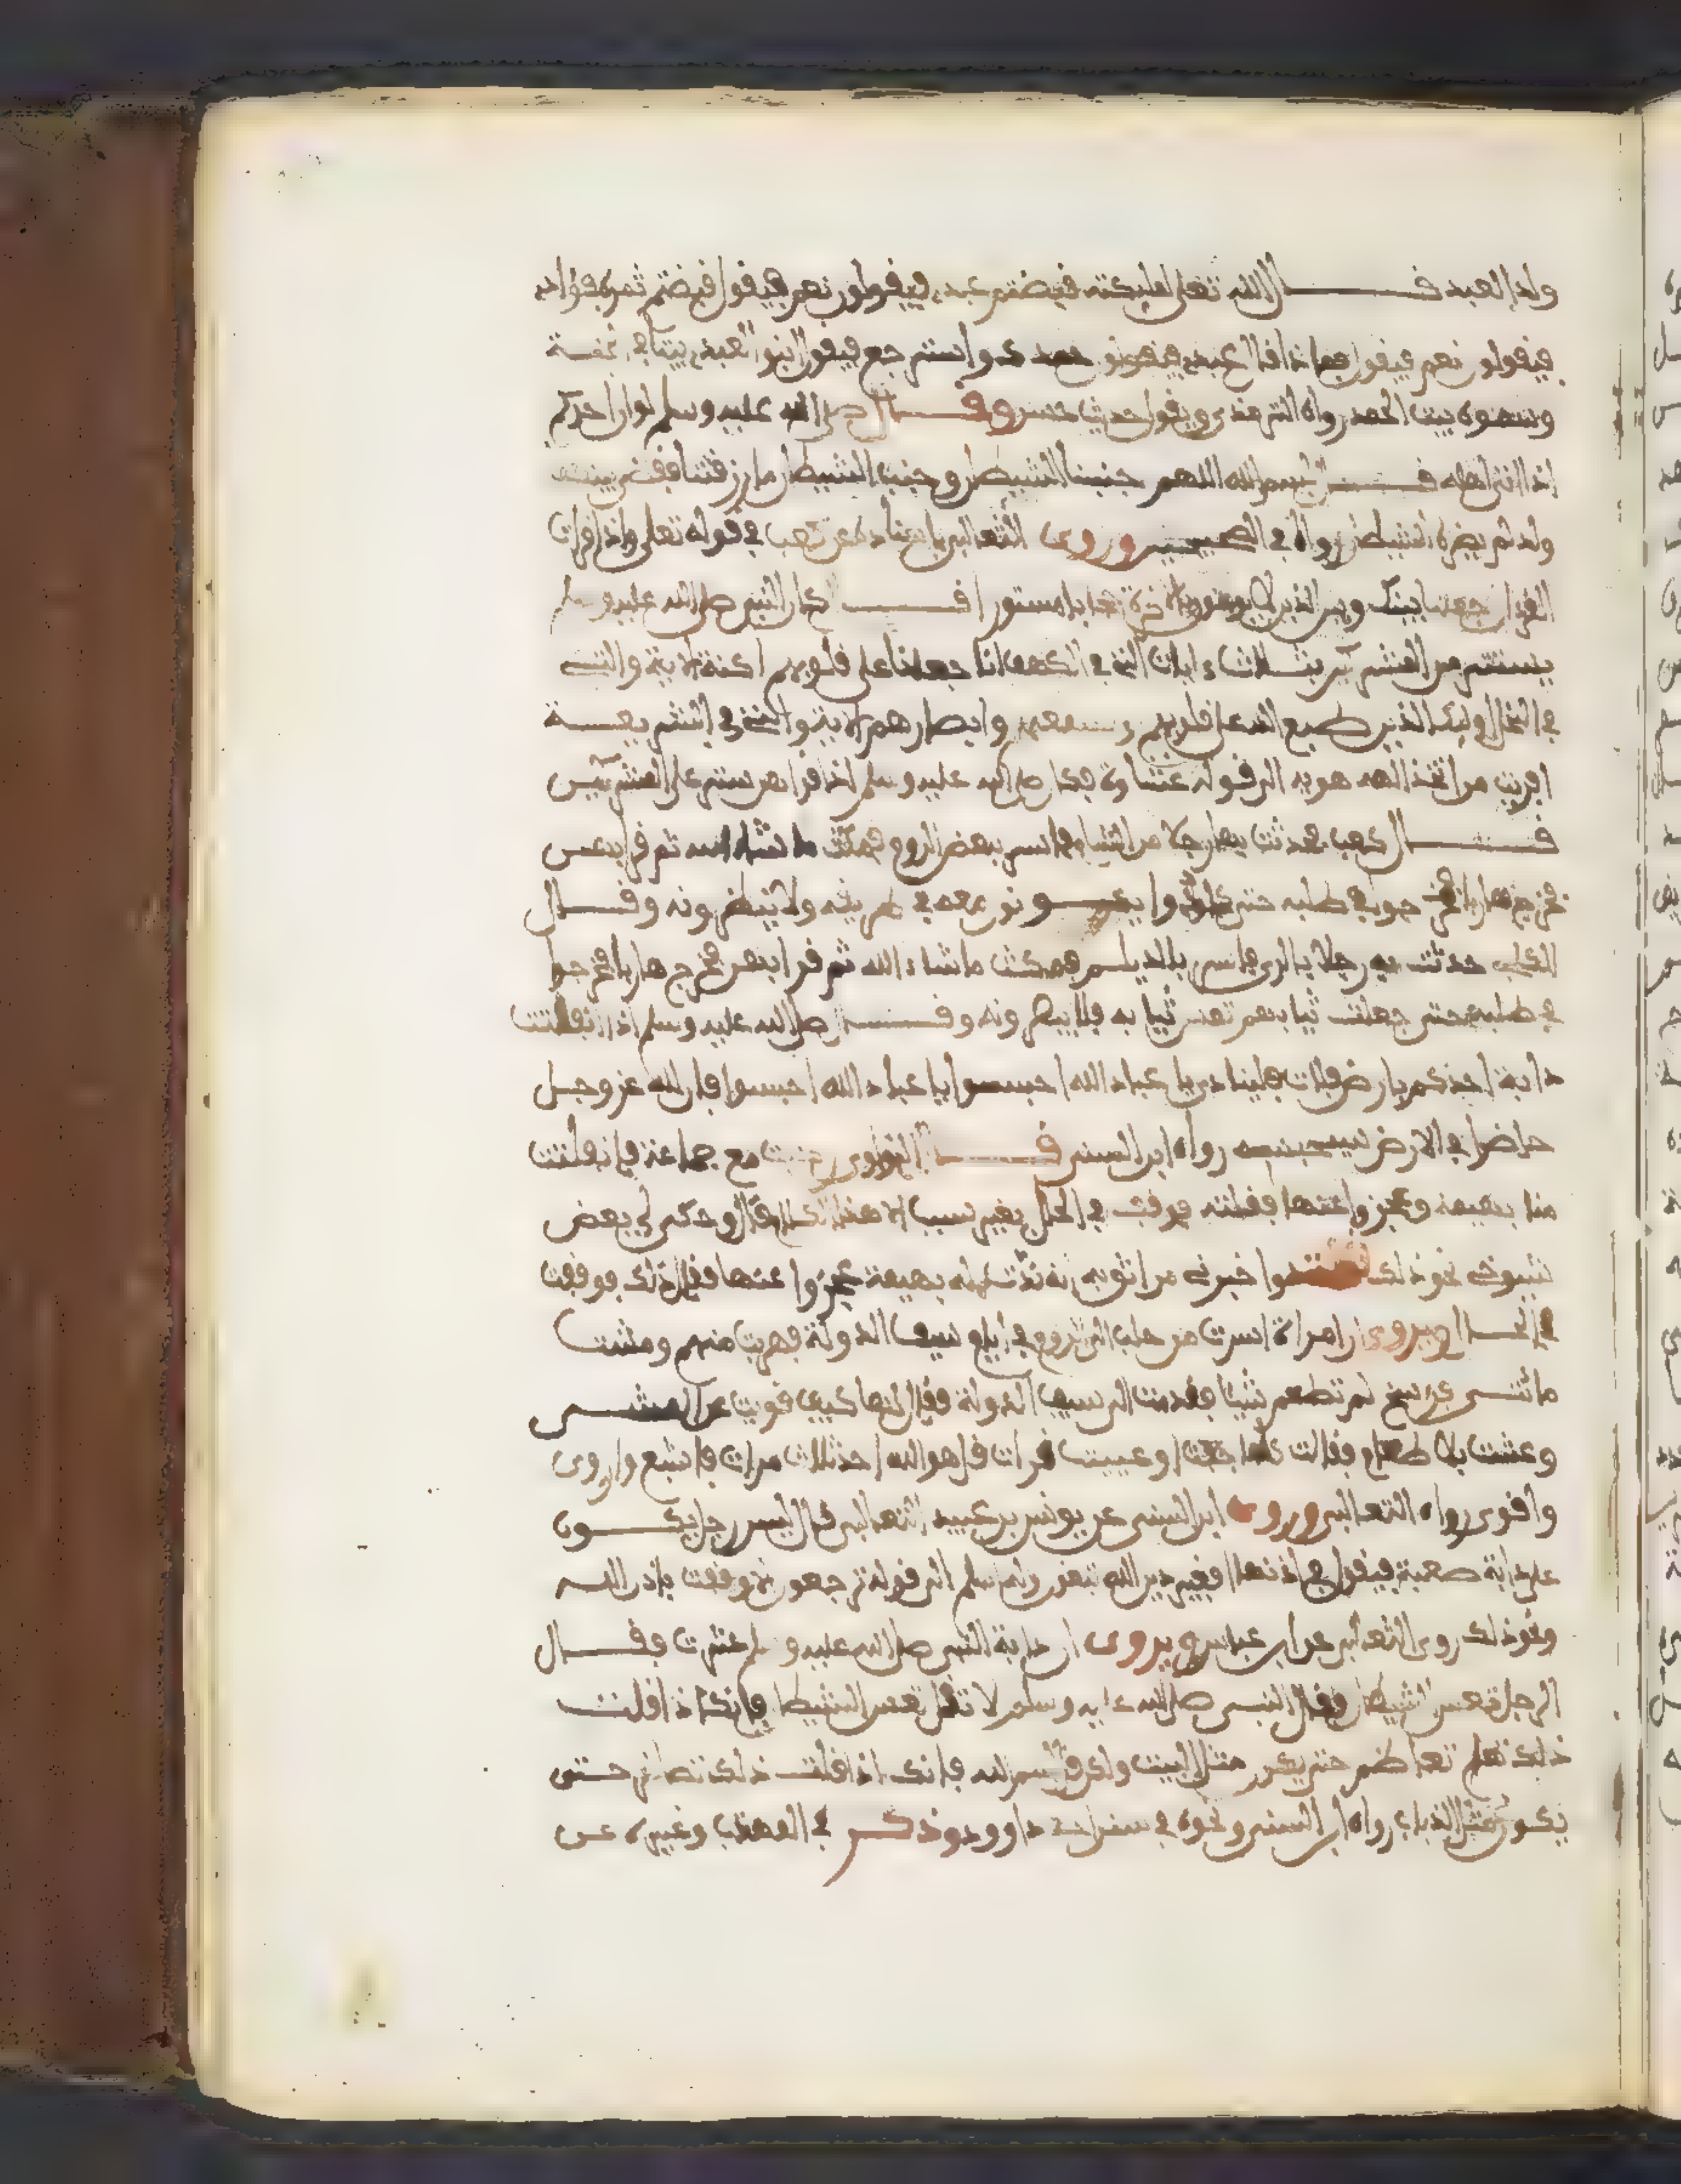 ولد العبد قال الله تعلى لمليكته قبضتم عبدي فيقولون نعم فيقول قبضتم ثمرة فؤاده
فيقولون نعم فيقول فماذا قال عبدي فيقولون حمدك واسترجع فيقول ابنوا لعبدي بيتا في الجنة
وسموه بيت الحمد رواه الترمذي ويقول حديث حسن وقال صلى الله عليه وسلم لو ان احدكم
اذا اتى اهله قال بسم الله اللهم جنبنا الشيطان وجنب الشيطان ما رزقتنا فقضي بينهما
ولد لم يضره الشيطان رواه في الصحيحين وروى الثعالبي باسناده عن كعب في قوله تعلى واذا قرات
القران جعلنا بينك وبين الذين لا يومنون بالاخرة حجابا مستورا قال كان النبي صلى الله عليه وسلم
يستتر من المشركين بثلاث ءايات التي في الكهف انا جعلنا على قلوبهم اكنة الاية والتي
في النحل اوليك الذين طبع الله على قلوبهم وسمعهم وابصارهم الاية والتي في الشريعة
افريت من اتخذ الهه هويه الى قوله غشاوة فكان صلى الله عليه وسلم اذا قراهن ستر على المشركين
قال كعب فحدثت بهن رجلا من الشام فاسر ببعض الروم فمكث ما شاء الله ثم قرا بهن
فخرج هاربا فخرجوا في طلبه حتى كانوا يكونون معه في طريقه ولا ينظرونه وقال
الكلبي حدثت به رجلا بالري فاسر بالديلم فمكث ما شاء الله ثم قرا بهن فخرج هاربا فخرجوا
في طلبه حتى جعلت ثيابهم تمس ثيابه فلا يبصرونه وقال صلى الله عليه وسلم اذا انفلتت
دابة احدكم بارض فلات فليناد يا عباد الله احبسوا يا عباد الله احبسوا فان لله عز وجل
حاضرا في الارض سيحبسه رواه ابن السني قال النواوي كنت مع جماعة فانفلتت
منا بهيمة وعجزوا عنها فقلته فوقفت في الحال بغير سبب الا هذا الكلام قال وحكى لي بعض
شيوخي نحو ذلك واخبرني من اثق به انه ندت له بهيمة عجزوا عنها فقال ذلك فوقفت
في الحال ويروى ان امراة اسرت من حلب الى الروم في ايام سيف الدولة فهربت منهم ومشت
مائتي فرسخ لم تطعم شيئا فقدمت الى سيف الدولة فقال لها كيف قويت على المشي
وعشت بلا طعام فقالت كلما جعت او عييت قرات قل هو الله احد ثلاث مرات فاشبع واروى
واقوى رواه الثعالبي وروى ابن السني عن يونس بن عبيد الثعالبي قال ليس رجل يكون
على دابة صعبة فيقول في اذنها افغير دين الله تبغون وله اسلم الى قوله ترجعون الا وقفت باذن الله
ونحو ذلك روى الثعالبي عن ابن عباس ويروى ان دابة النبي صلى الله عليه وسلم عثرت فقال
الرجل تعس الشيطان فقال النبي صلى الله عليه وسلم لا تقل تعس الشيطان فانك اذا قلت
ذلك تعاظم حتى يكون مثل البيت ولكن قل بسم الله فانك اذا قلت ذلك تصاغر حتى
يكون مثل الذباب رواه ابن السني ونحوه في سنن ابي داوود وذكر في المهذب وغيره عن